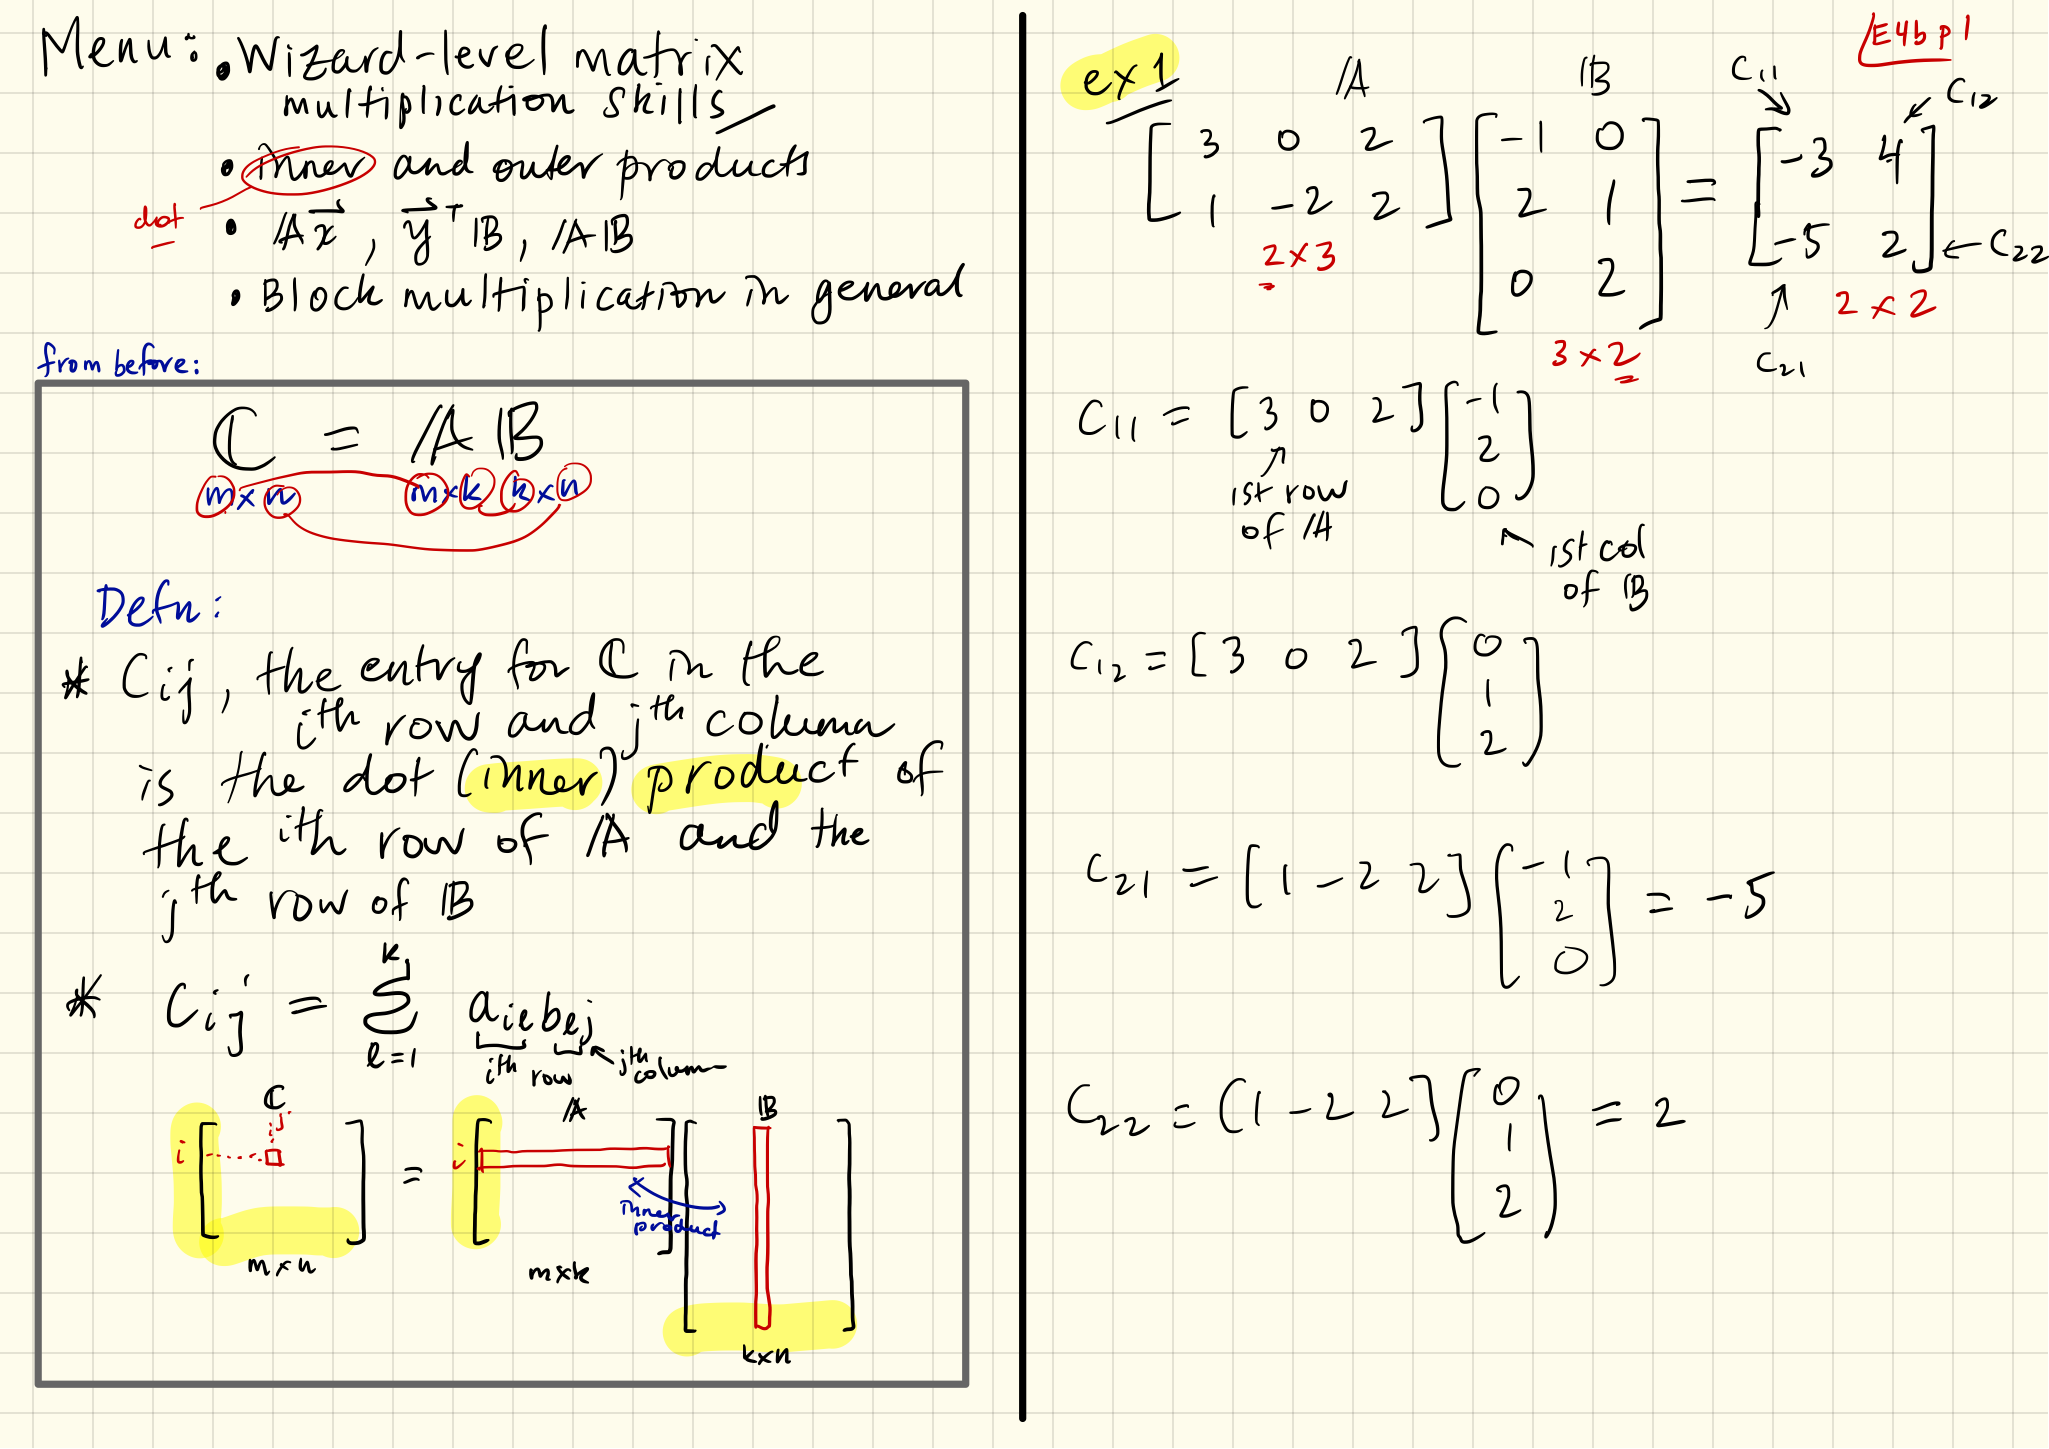 Menu: • Wizard-level matrix
multiplication skills
• inner and outer products
dot
• 𝔸x⃗, y⃗ᵀ𝔹, 𝔸𝔹
• Block multiplication in general
from before:
ℂ = 𝔸 𝔹
m×n m×k k×n
Defn:
* Cij, the entry for ℂ in the
ith row and jth column
is the dot (inner) product of
the ith row of 𝔸 and the
jth row of 𝔹
* Cij = Σ aiℓ bℓj
k
ℓ=1
ith row
jth
column
ℂ 𝔸 𝔹
j
i = i
inner
product
m×n
m×k
k×n
E4b p1
ex1 𝔸 𝔹 C11 C12
[3 0 2] [-1 0] [-3 4]
[1 -2 2] [2 1] = [-5 2] ← C22
[0 2]
2×3 3×2 2×2
C21
C11 = [3 0 2] [-1 2 0]
1st row
of 𝔸
1st col
of 𝔹
C12 = [3 0 2] [0 1 2]
C21 = [1 -2 2] [-1 2 0] = -5
C22 = [1 -2 2] [0 1 2] = 2